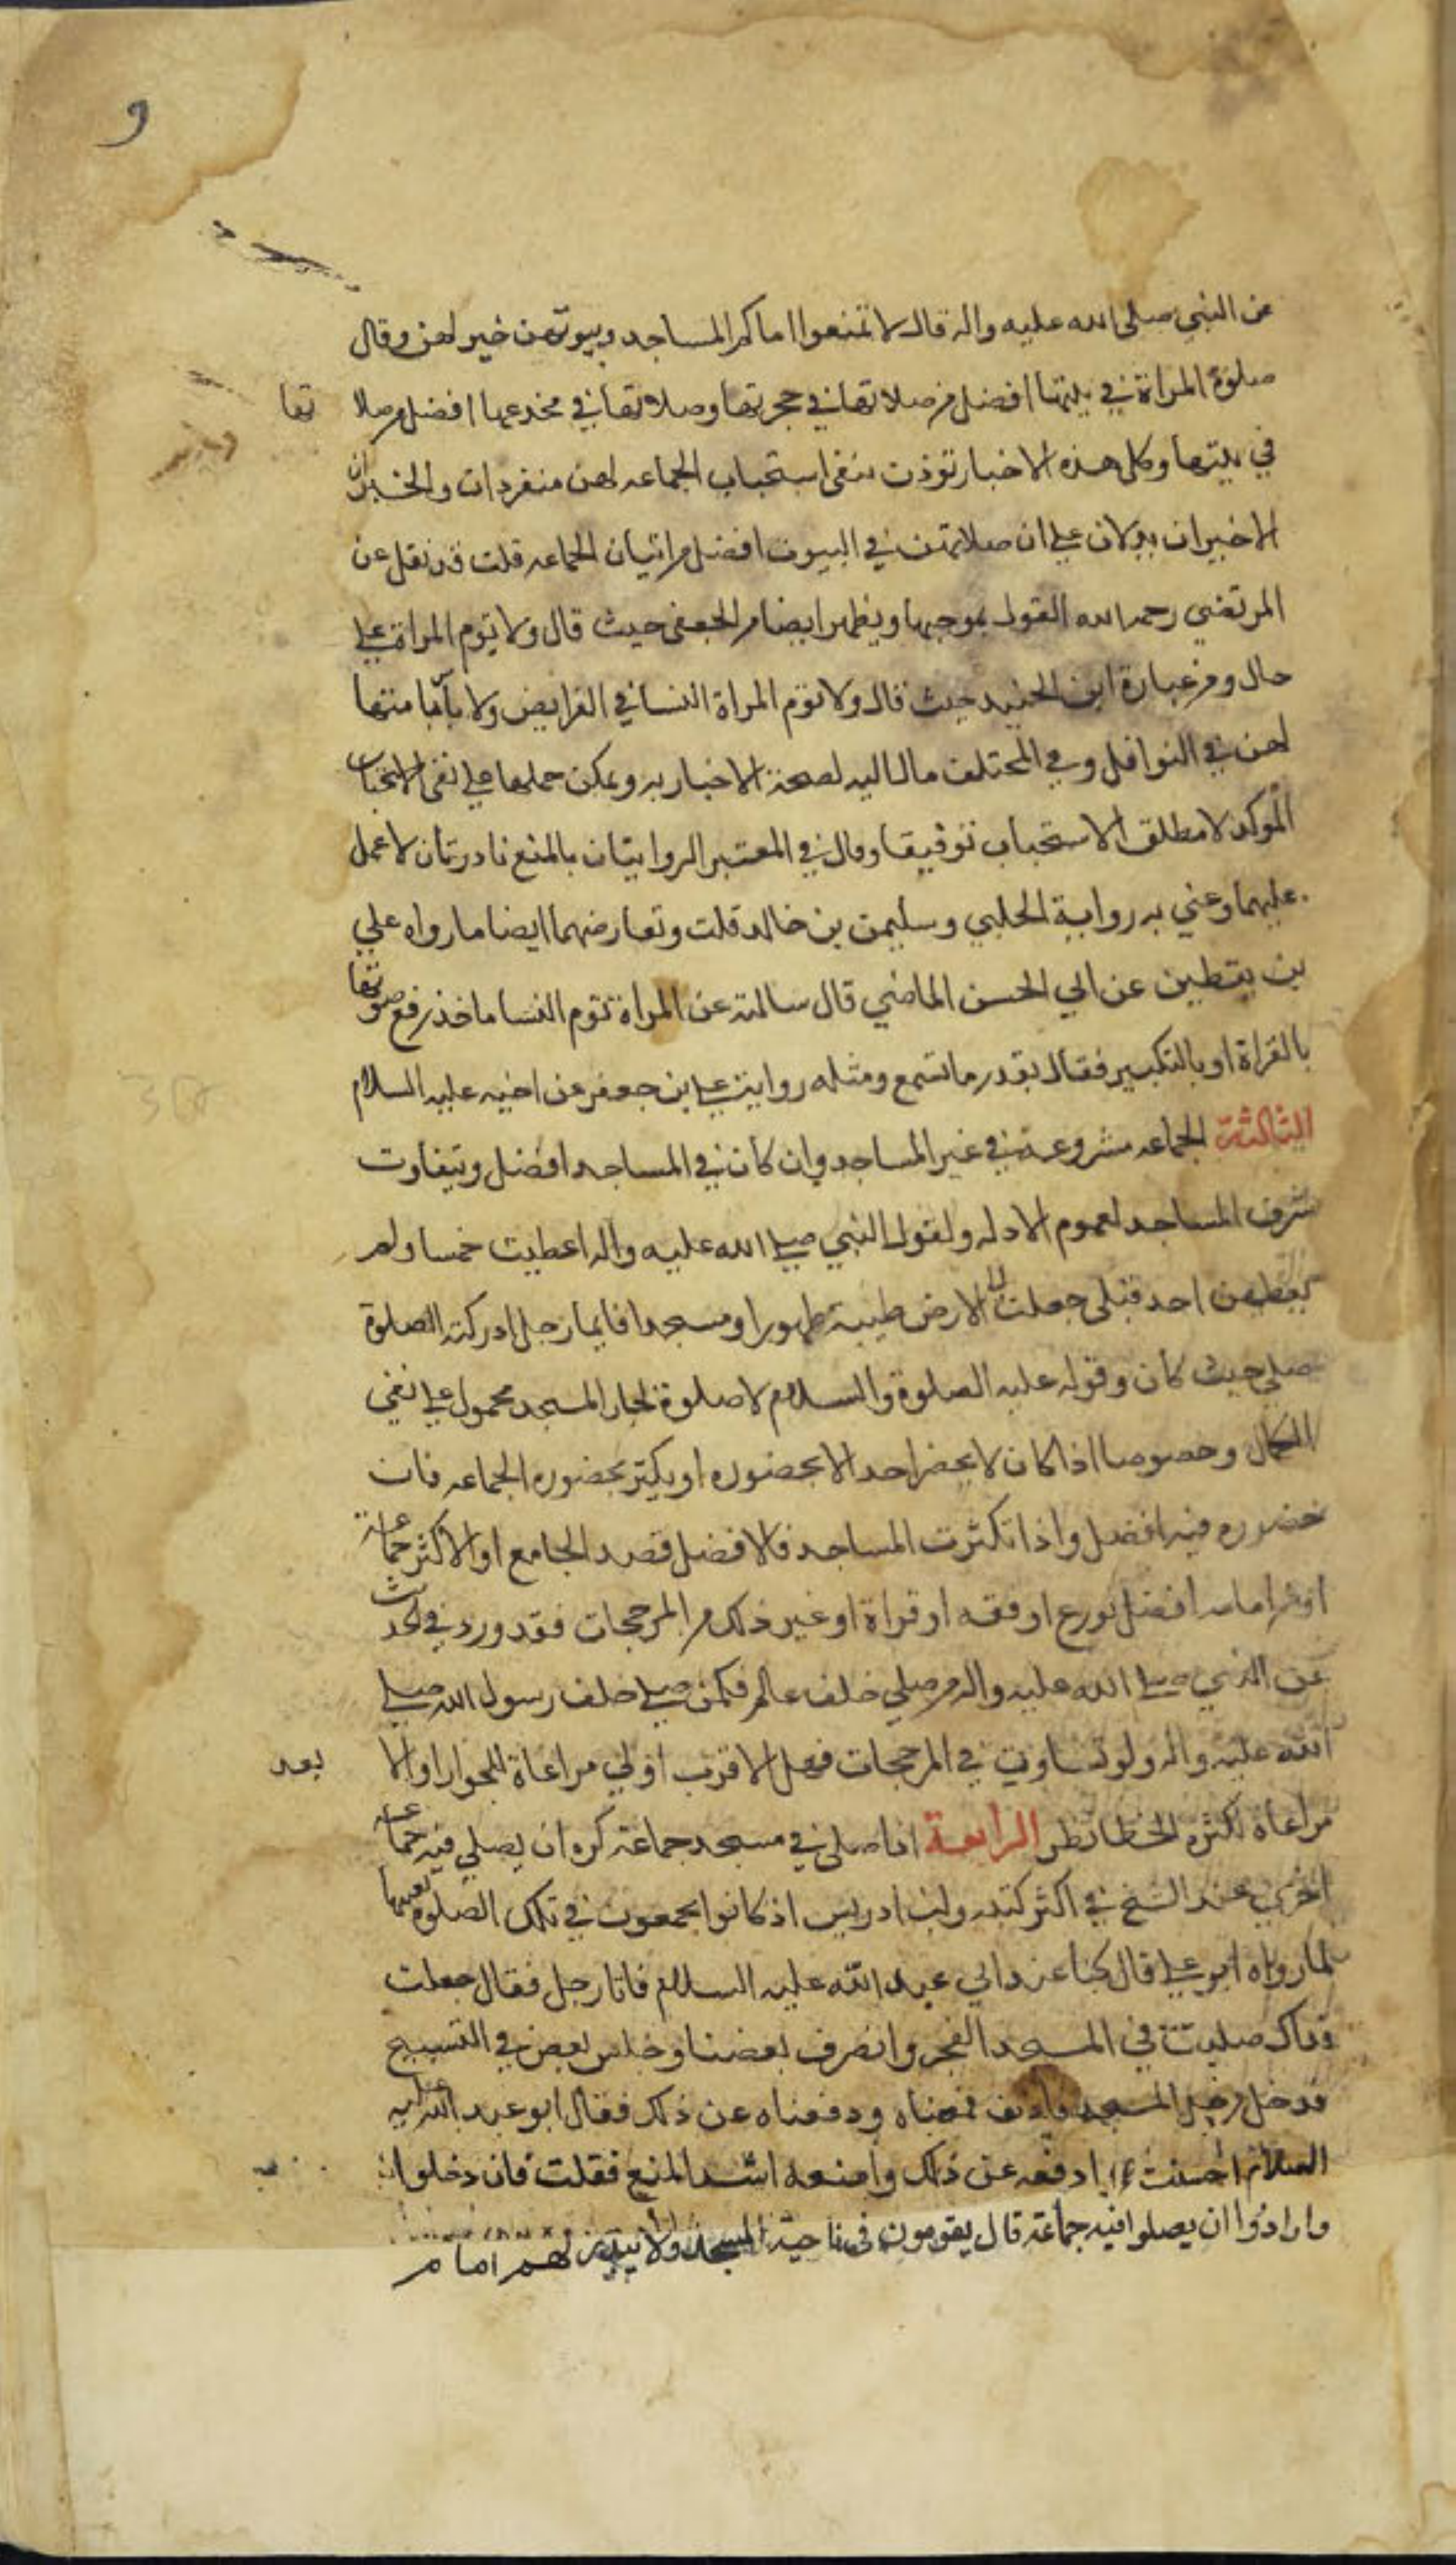 9
عن النبي صلى الله عليه واله قال لا تمنعوا اماكم المساجد وبيوتهن خير لهن وقال
صلوة المراة في بيتها افضل من صلاتها في حجرتها وصلاتها في مخدعها افضل من صلا تها
في بيتها وكل هذه الاخبار تؤذن بنفي استحباب الجماعه لهن منفردات والخبران
الاخيران يدلان على ان صلاتهن في البيوت افضل من اتيان الجماعه قلت قد نقل عن
المرتضي رحمه الله القول بموجبها ويظهر ايضا من الجعفي حيث قال ولا يؤم المراة على
حال ومن عبارة ابن الجنيد حيث قال ولا تؤم المراة النسا في الفرايض ولا باس بامامتها
لهن في النوافل وفي المختلف مال اليه لصحة الاخبار به ويمكن حملها على نفي الاستحباب
المؤكد لا مطلق الاستحباب توفيقا وقال في المعتبر الروايتان بالمنع نادرتان لا عمل
عليهما وعني به رواية الحلبي وسليمن بن خالد قلت وتعارضهما ايضا ما رواه علي
بن يقطين عن ابي الحسن الماضي قال سالته عن المراة تؤم النسا ما حد رفع صوتها
بالقراة او بالتكبير فقال بقدر ما تسمع ومثله رواية علي بن جعفر عن اخيه عليه السلام
الثالثة الجماعه مشروعة في غير المساجد وان كان في المساجد افضل ويتفاوت
شرف المساجد لعموم الادله ولقول النبي صلى الله عليه واله اعطيت خمسا ولم
يعطهن احد قبلي جعلت لي الارض طيبة طهورا ومسجدا فايما رجل ادركته الصلوة
صلى حيث كان وقوله عليه الصلوة والسلام لا صلوة لجار المسجد محمول على نفي
الكمال وخصوصا اذا كان لا يحضر احد الا بحضوره او يكثر بحضوره الجماعه فان
حضوره فيه افضل واذا تكثرت المساجد فالافضل قصد الجامع او الاكثر جماعة
او من امامه افضل بورع او فقه او قراة او غير ذلك من المرجحات فقد ورد في الحديث
عن النبي صلى الله عليه واله من صلى خلف عالم فكمن صلى خلف رسول الله صلى
الله عليه واله ولو تساوت في المرجحات فهل الاقرب اولى مراعاة للجوار او الا بعد
مراعاة لكثرة الخطا نظر الرابعة اذا صلى في مسجد جماعة كره ان يصلي فيه جماعة
اخرى عند الشيخ في اكثر كتبه وابن ادريس اذ كانوا يجمعون في تلك الصلوة بعينها
لما رواه ابو علي قال كنا عند ابي عبد الله عليه السلام فاتا رجل فقال جعلت
فداك صليت في المسجد الفجر وانصرف بعضنا وجلس بعض في التسبيح
فدخل رجل المسجد فاذن فمنعناه ودفعناه عن ذلك فقال ابو عبد الله عليه
السلام احسنت ادفعه عن ذلك وامنعه اشد المنع فقلت فان دخلوا
وارادوا ان يصلوا فيه جماعة قال يقومون في ناحية المسجد ولا لهم امام